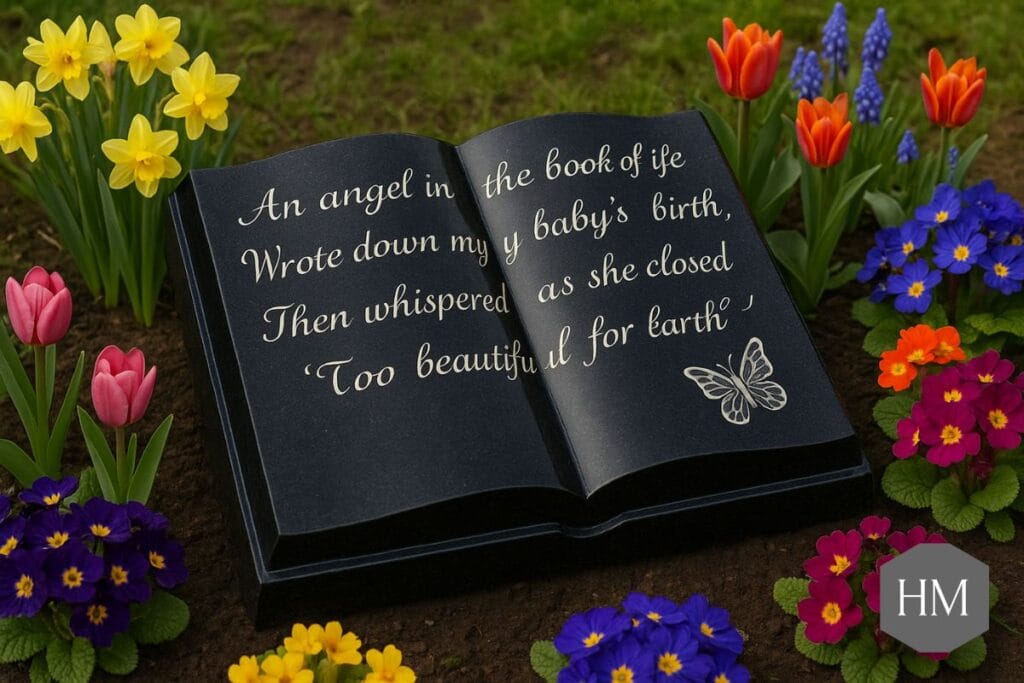 An angel in the book of ife
Wrote down my y baby's birth,
Then whispered as she closed
‘Too beautifu ul for earth’ ’
HM